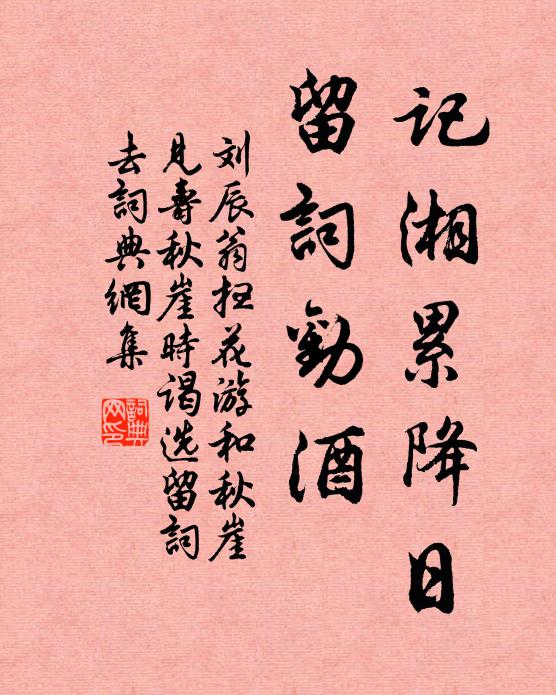 记湘累降日
留詞勸酒
刘辰翁扫花游和秋崖
见寿秋崖时谒选留詞
去詞典網集
詞典网印